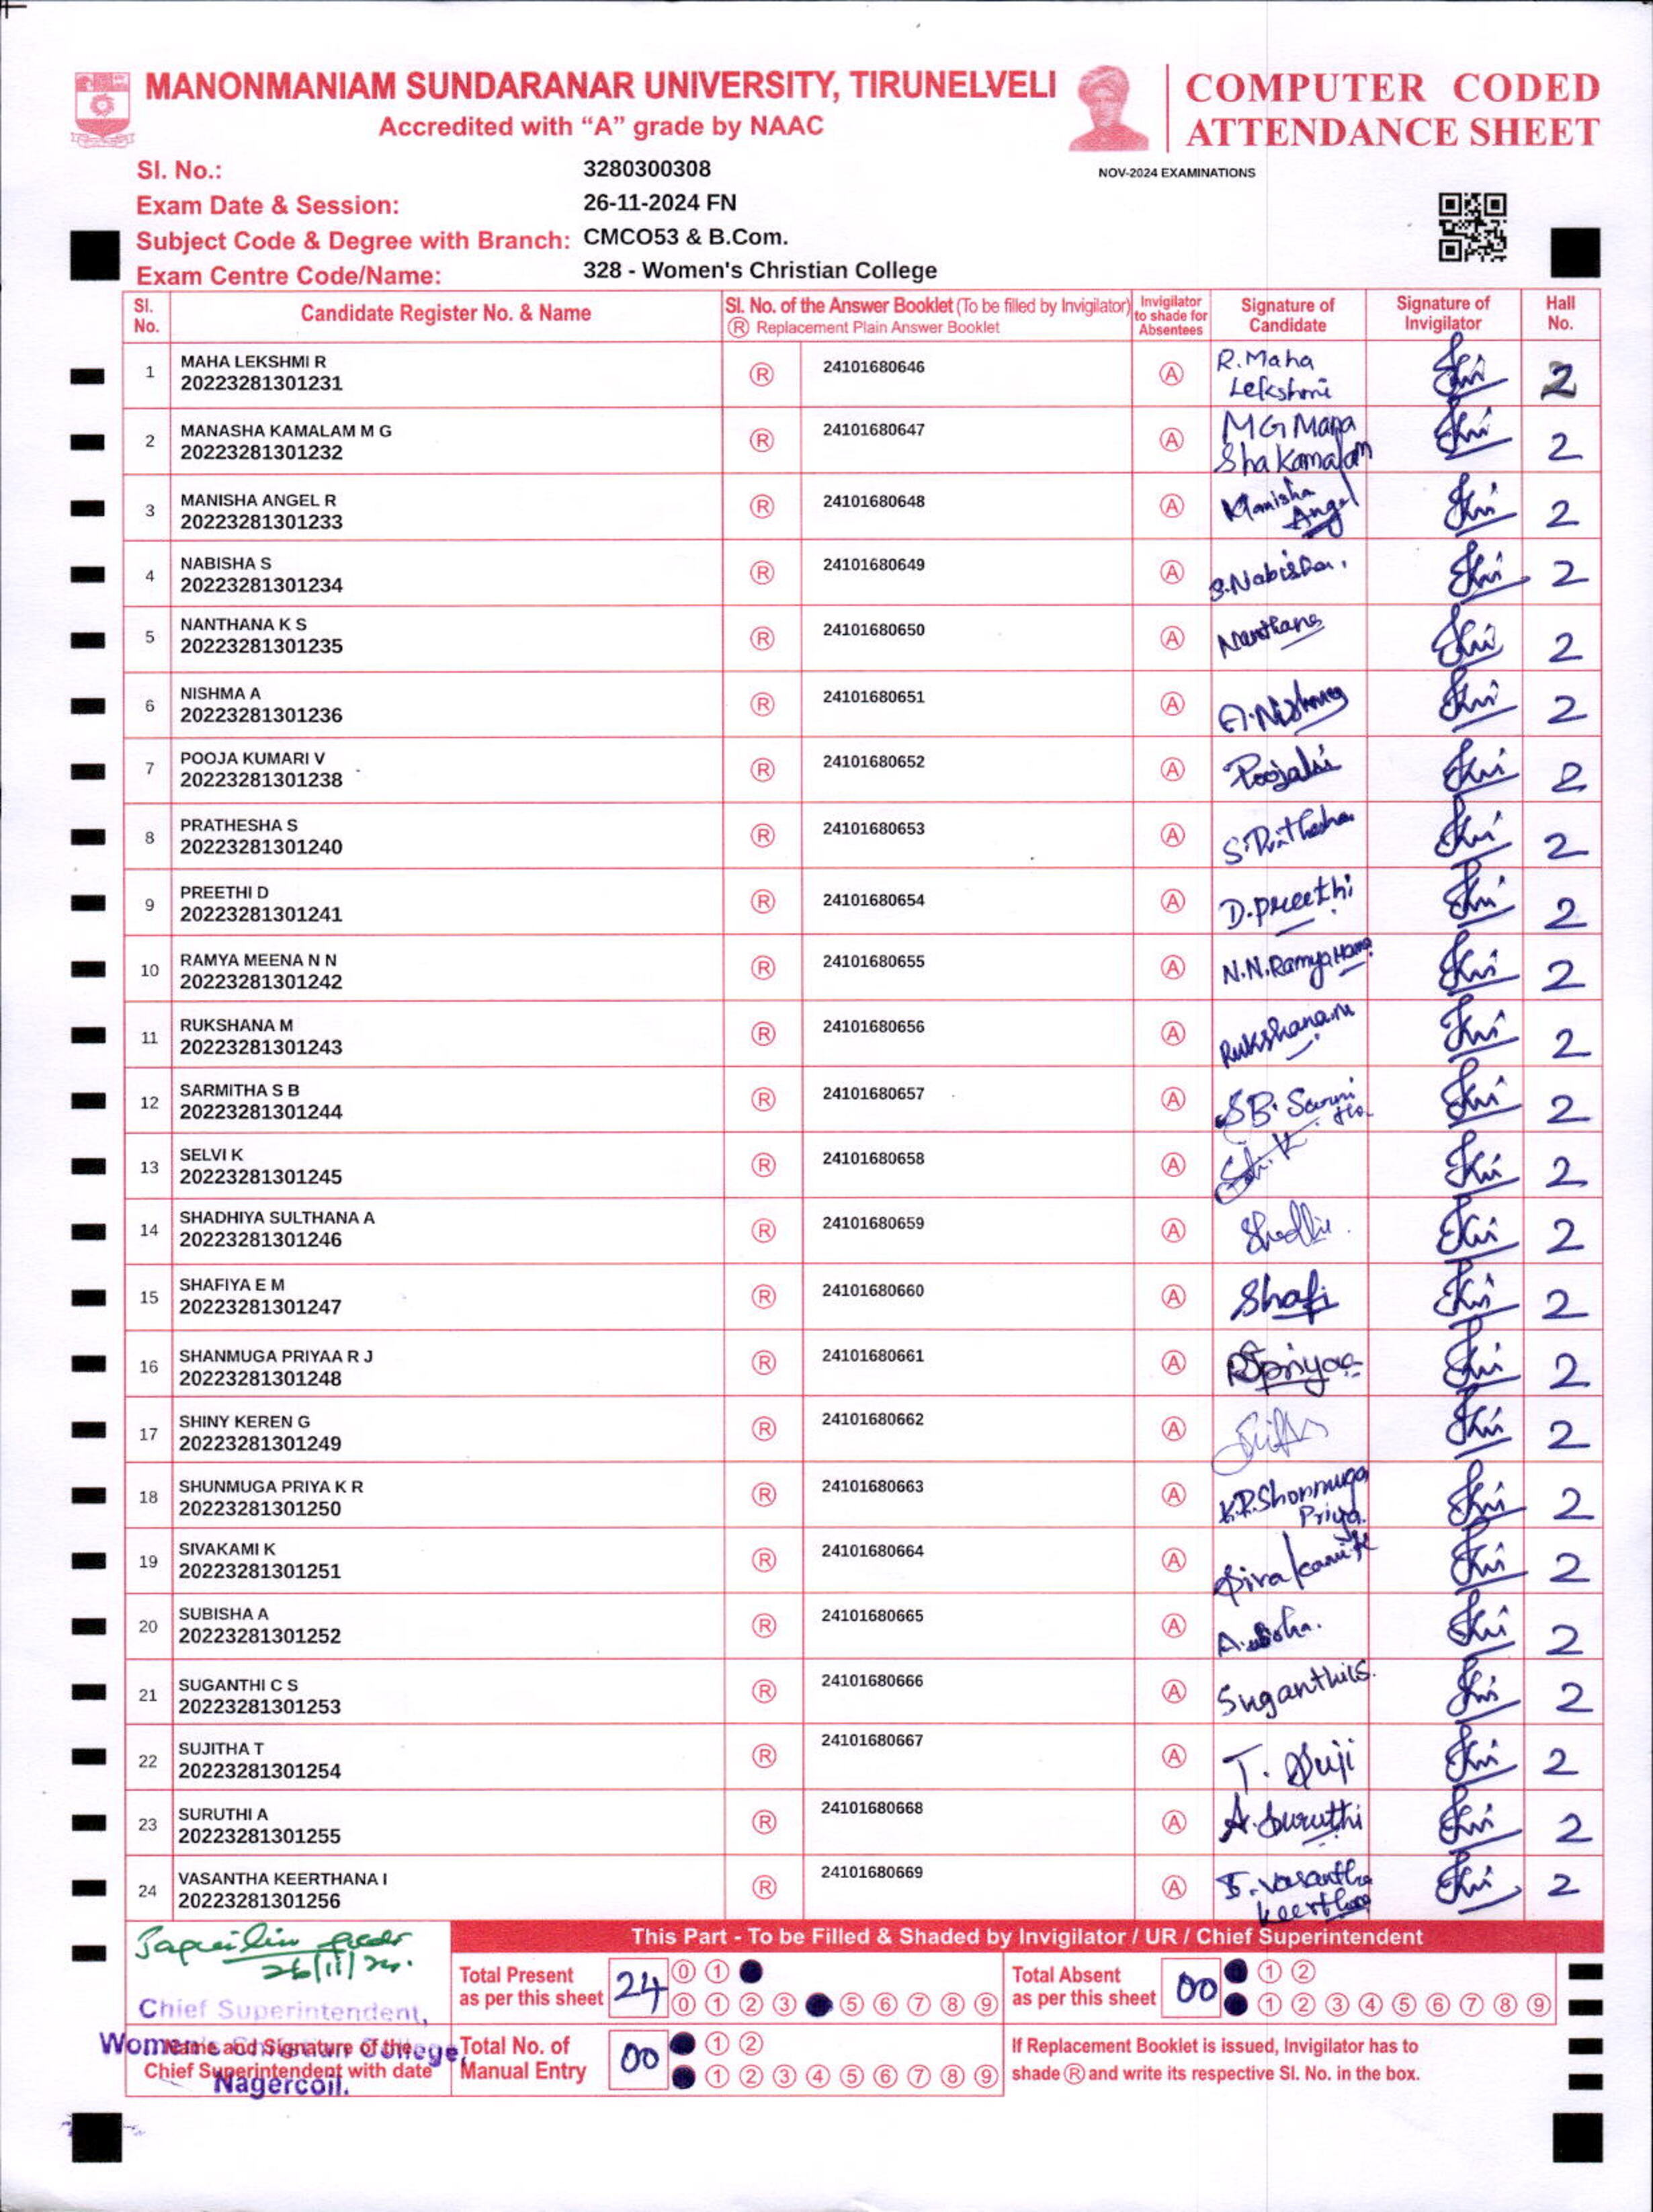 MANONMANIAM SUNDARANAR UNIVERSITY, TIRUNELVELI
Accredited with “A” grade by NAAC
COMPUTER CODED
ATTENDANCE SHEET
NOV-2024 EXAMINATIONS
Sl. No.: 3280300308
Exam Date & Session: 26-11-2024 FN
Subject Code & Degree with Branch: CMCO53 & B.Com.
Exam Centre Code/Name: 328 - Women's Christian College
Sl. No. Candidate Register No. & Name Sl. No. of the Answer Booklet (To be filled by Invigilator) Ⓡ Replacement Plain Answer Booklet Invigilator to shade for Absentees Signature of Candidate Signature of Invigilator Hall No.
1 MAHA LEKSHMI R 20223281301231 Ⓡ 24101680646 Ⓐ R.Maha Lekshmi 2
2 MANASHA KAMALAM M G 20223281301232 Ⓡ 24101680647 Ⓐ MG Mana Sha Kamalam 2
3 MANISHA ANGEL R 20223281301233 Ⓡ 24101680648 Ⓐ Manisha Angel 2
4 NABISHA S 20223281301234 Ⓡ 24101680649 Ⓐ S.Nabisha. 2
5 NANTHANA K S 20223281301235 Ⓡ 24101680650 Ⓐ Nanthana 2
6 NISHMA A 20223281301236 Ⓡ 24101680651 Ⓐ A.Nishma 2
7 POOJA KUMARI V 20223281301238 Ⓡ 24101680652 Ⓐ 2
8 PRATHESHA S 20223281301240 Ⓡ 24101680653 Ⓐ S.Prathesha 2
9 PREETHI D 20223281301241 Ⓡ 24101680654 Ⓐ D.Preethi 2
10 RAMYA MEENA N N 20223281301242 Ⓡ 24101680655 Ⓐ N.N.Ramya 2
11 RUKSHANA M 20223281301243 Ⓡ 24101680656 Ⓐ Rukshana.M 2
12 SARMITHA S B 20223281301244 Ⓡ 24101680657 Ⓐ SB. Sarmi tha 2
13 SELVI K 20223281301245 Ⓡ 24101680658 Ⓐ 2
14 SHADHIYA SULTHANA A 20223281301246 Ⓡ 24101680659 Ⓐ 2
15 SHAFIYA E M 20223281301247 Ⓡ 24101680660 Ⓐ Shafi 2
16 SHANMUGA PRIYAA R J 20223281301248 Ⓡ 24101680661 Ⓐ RJpriyaa 2
17 SHINY KEREN G 20223281301249 Ⓡ 24101680662 Ⓐ 2
18 SHUNMUGA PRIYA K R 20223281301250 Ⓡ 24101680663 Ⓐ K.R.Shonmuga Priya. 2
19 SIVAKAMI K 20223281301251 Ⓡ 24101680664 Ⓐ Sivakami K 2
20 SUBISHA A 20223281301252 Ⓡ 24101680665 Ⓐ 2
21 SUGANTHI C S 20223281301253 Ⓡ 24101680666 Ⓐ Suganthi CS. 2
22 SUJITHA T 20223281301254 Ⓡ 24101680667 Ⓐ T. Suji 2
23 SURUTHI A 20223281301255 Ⓡ 24101680668 Ⓐ A.Suruthi 2
24 VASANTHA KEERTHANA I 20223281301256 Ⓡ 24101680669 Ⓐ I. Vasantha Keerthana 2
26/11/24.
Chief Superintendent,
Women's Christian College,
Nagercoil.
Name and Signature of the
Chief Superintendent with date
This Part - To be Filled & Shaded by Invigilator / UR / Chief Superintendent
Total Present as per this sheet 24 0 1
0 1 2 3 5 6 7 8 9
Total Absent as per this sheet 00 1 2
1 2 3 4 5 6 7 8 9
Total No. of Manual Entry 00 1 2
1 2 3 4 5 6 7 8 9
If Replacement Booklet is issued, Invigilator has to
shade Ⓡ and write its respective Sl. No. in the box.